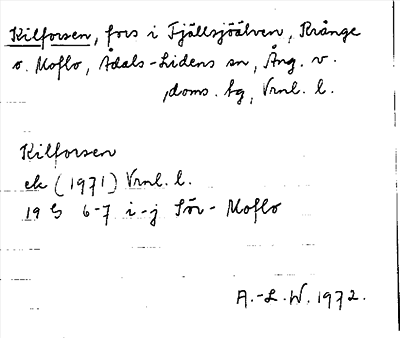 Kilforsen, fors i Fjällsjöälven, Krånge
o. Moflo, Ådals-Lidens sn, Ång. v.
doms. tg, Vrnl. l.
Kilforsen
ek (1971) Vrnl. l.
19 G 6-7 i-j Sör-Moflo
A.-L.W. 1972.